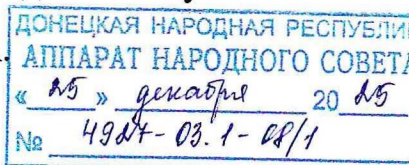 ДОНЕЦКАЯ НАРОДНАЯ РЕСПУБЛИ
АППАРАТ НАРОДНОГО СОВЕТА
« 25 » декабря 20 25
№ 4927-03.1-08/1